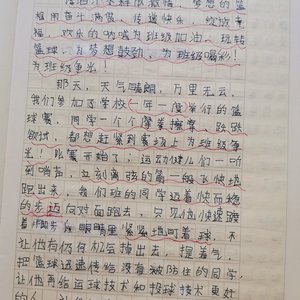 框用奋斗满篮，传递快乐，绽放幸
福，欢乐的呐喊为班级加油。玩转
篮球，为梦想鼓劲，为班级喝彩！
为班级争光！
那天，天气晴朗，万里无云，
我们参加了学校一年一度举行的篮
球赛，同学一个个摩拳擦掌，跃跃
欲试，都想赶紧到赛场上为班级争
光！比赛开始了；运动健儿们一听
到哨声，立刻离弦的箭一般飞快地
跑出来，我们班的同学迈着快而稳
的步迈向对面跑去，只见他快速蹲
着脚步，眼睛紧紧地盯着球，不
让他有仍何机会掉出去，提着气，
把篮球迅速传给没有被防住的同学，
让他再给运球技术和投球技术更好